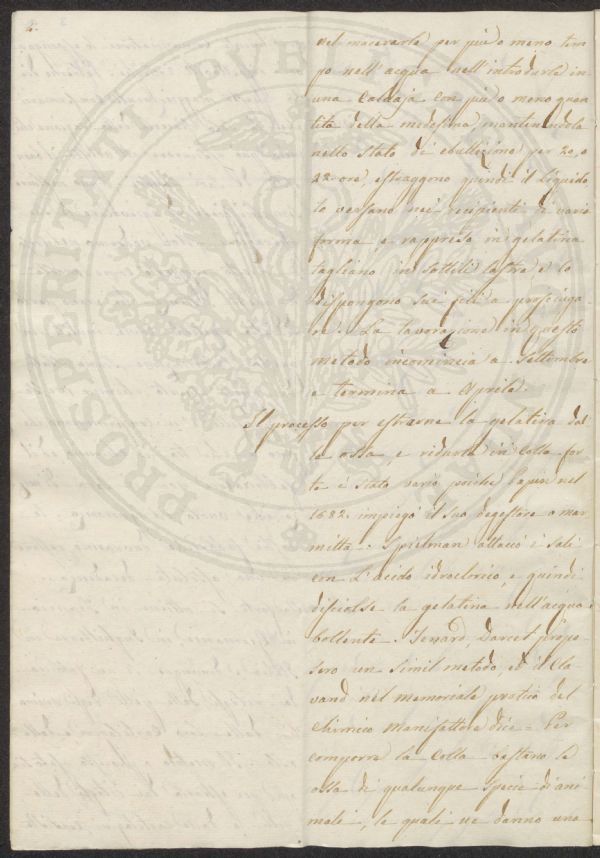 4.
nel macerarle per più o meno tem
po nell'acqua nell'introdurle in
una Caldaja con più o meno quan
tità della medesima, mantenendola
nello stato di ebullizione per 20, o
22 ore, estraggono quindi il liquido
lo versano nei recipienti di varie
forma, e rappreso in gelatina
tagliano in sottili lastre e lo
dispongono sui fili a prosciuga
re. La lavorazione in questo
metodo incomincia a Settembre
e termina a Aprile
Il processo per estrarne la gelatina dal
le ossa, e ridurla in Colla for
te è stato vario poichè Papin nel
1682. impiegò il suo degestore o mar
mitta. Spielman attaccò i sali
con l'acido idroclorico, e quindi
disciolse la gelatina nell'acqua
bollente. Tenard, Darcet propo
sero un simil metodo, ed il Cla
vand nel memoriale pratico del
Chimico Manifattore dice = Per
comporre la Colla bastano le
ossa di qualunque specie di ani
mali, le quali ne danno una
PROSPERITATI PUBLICAE